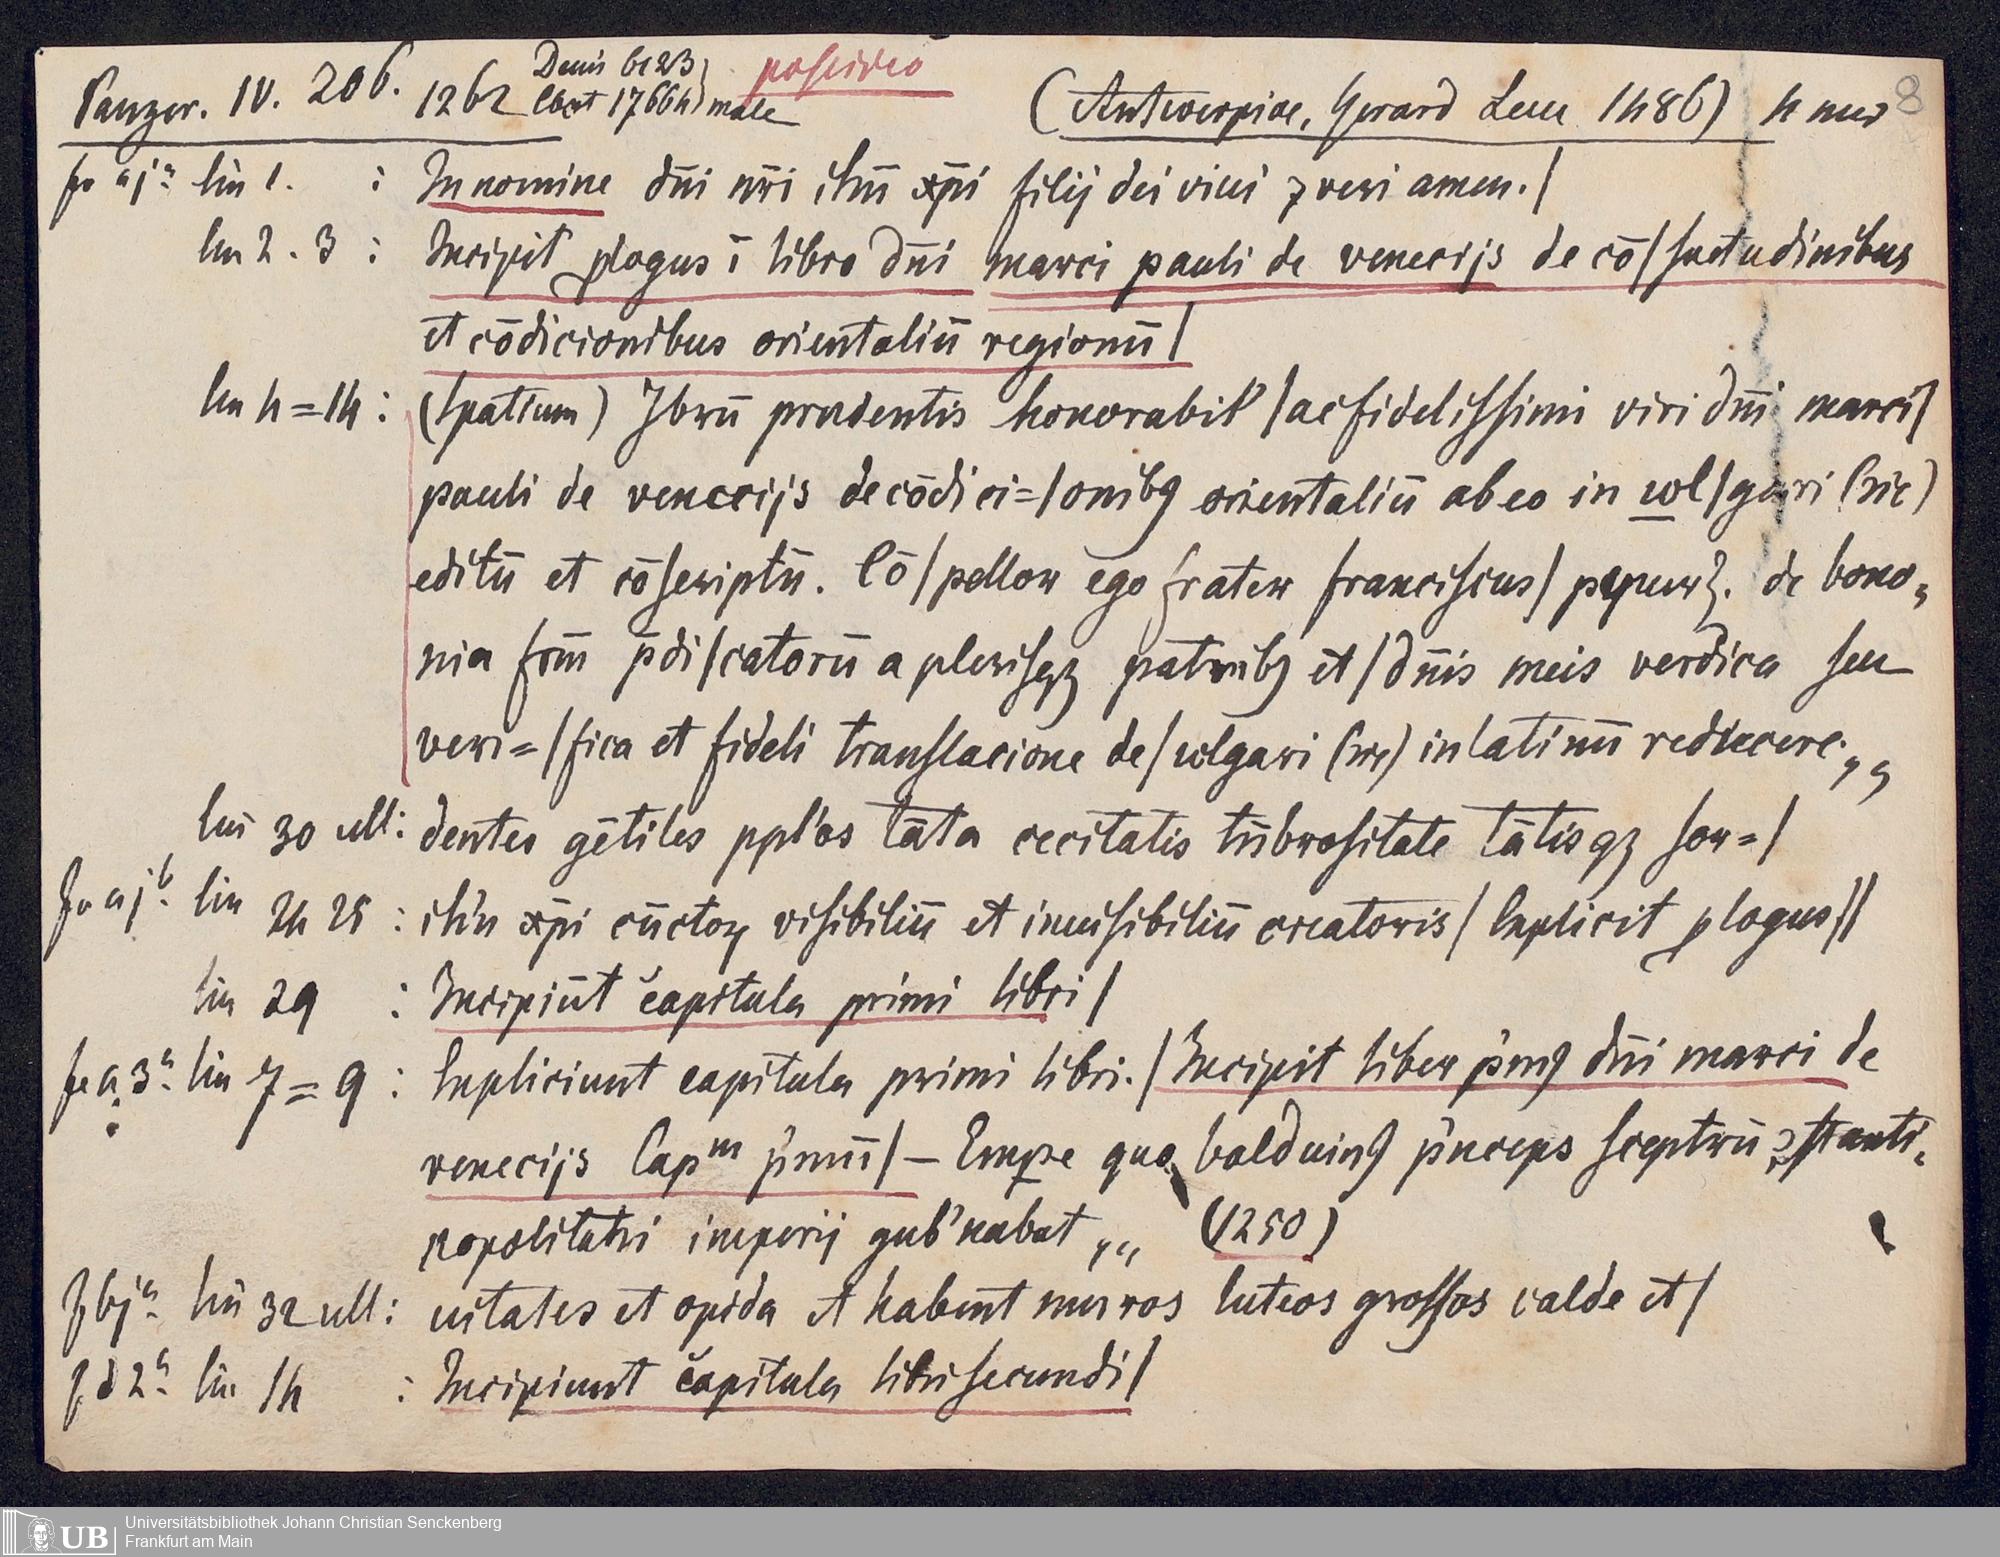 Panzer. IV. 206. 1262 Denis 6123 Ebert 17664 male possideo (Antwerpiae, Gerard Leeu 1486) 4 min 8
fo aja lin 1. : In nomine dn̄i nr̄i ihū xp̄i filij dei viui ⁊ veri amen./
lin 2. 3 : Incipit plogus ī libro dn̄i marci pauli de venecijs de cō/suetudinibus
et cōdicionibus orientaliū regionū/
lin 4=14 : (spatium) Ibrū prudentis honorabil' /ac fidelissimi viri dn̄i marci/
pauli de venecijs de cōdici=/onibꝰ orientaliū ab eo in wl/gari (sic)
editū et cōscriptū. Cō/pellor ego frater franciscus/ de bono„
nia frm̄ p̄di/catorū a plerisqꝫ patribꝫ et /dn̄is meis verdica seu
veri=/fica et fideli translacione de/ wlgari (sic) in latinū reducere.„
lin 30 ult: dentes gētiles ppl'os tāta cecitatis tn̄brositate tātisqꝫ sor=/
fo ajb. lin 24 25 : ih'u xp̄i cūctoꝝ visibiliū et inuisibiliū creatoris/ Explicit plogus//
lin 29 : Incipiūt capitula primi libri/
fo a 3a. lin 7=9 : Expliciunt capitula primi libri./ Incipit liber p'mꝰ dn̄i marci de
venecijs Capm p'mū/ — Tempe quo balduinꝰ p'nceps sceptrū ꝯstanti„
nopolitani imperij gub'nabat „„ (1250)
f bja. lin 32 ult: uitates et opida et habent muros luteos grossos valde et/
f d 2a. lin 14 : Incipiunt capitula libri secundi/
UB Universitätsbibliothek Johann Christian Senckenberg
Frankfurt am Main